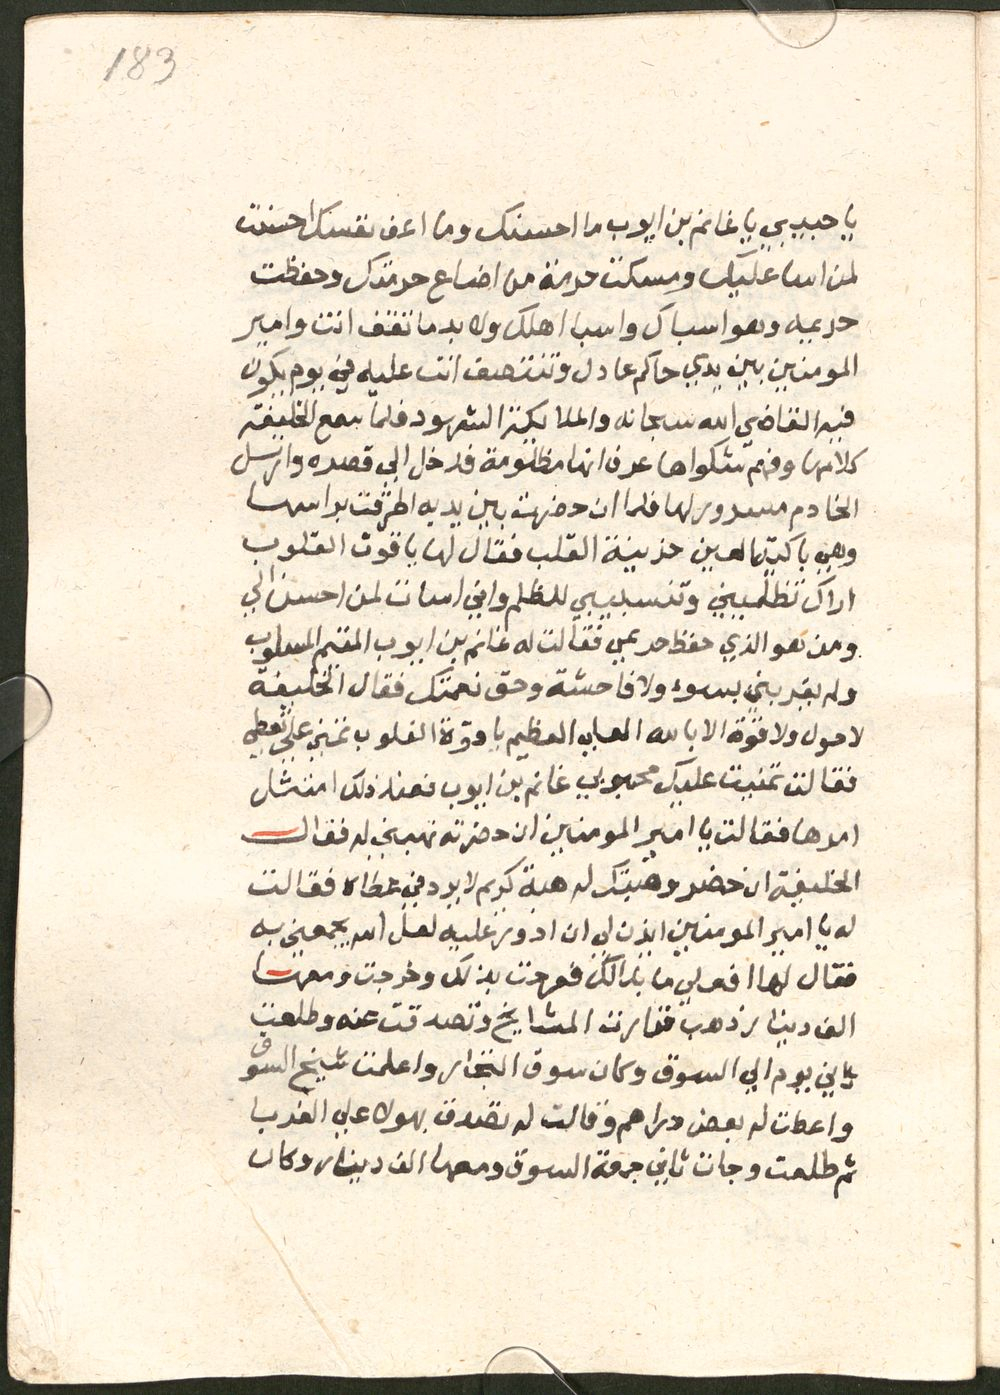 183
يا حبيبي يا غانم بن ايوب ما احسنك وما اعف نفسك احسنت
لمن اسا عليك ومسكت حرمة من اضاع حرمتك وحفظت
حريمه وهو اسباك واسبا اهلك ولا بد ما تقف انت وامير
المومنين بين يدي حاكم عادل وتنتصف انت عليه في يوم يكون
فيه القاضي الله سبحانه والملايكة الشهود فلما سمع الخليفة
كلامها وفهم شكواها عرف انها مظلومة فدخل الي قصره وارسل
الخادم مسرور لها فلما ان حضرت بين يديه اطرقت براسها
وهي باكية العين حزينة القلب فقال لها يا قوت القلوب
اراك تظلميني وتنسبيني للظلم واني اسات لمن احسن الي
ومن هو الذي حفظ حريمي فقالت له غانم بن ايوب المتيم المسلوب
ولم يقربني بسوء ولا فاحشة وحق نعمتك فقال الخليفة
لا حول ولا قوة الا بالله العلي العظيم يا قوة القلوب تمني علي تعطي
فقالت تمنيت عليك محبوبي غانم بن ايوب فعند ذلك امتثل
امرها فقالت يا امير المومنين ان حضرته تهبني له فقال
الخليفة ان حضر وهبتك له هبة كريم لا يرد في عطاه فقالت
له يا امير المومنين ايذن لي ان ادور عليه لعل الله يجمعني به
فقال لها افعلي ما بدالك ففرحت بذلك وخرجت ومعها
الف دينار ذهب فزارت المشايخ وتصدقت عنه وطلعت
ثاني يوم الي السوق وكان سوق التجار واعلمت شيخ السوق
واعطت له بعض دراهم وقالت له تصدق بهولا علي الغربا
ثم طلعت وجات ثاني جمعة السوق ومعها الف دينار وكان